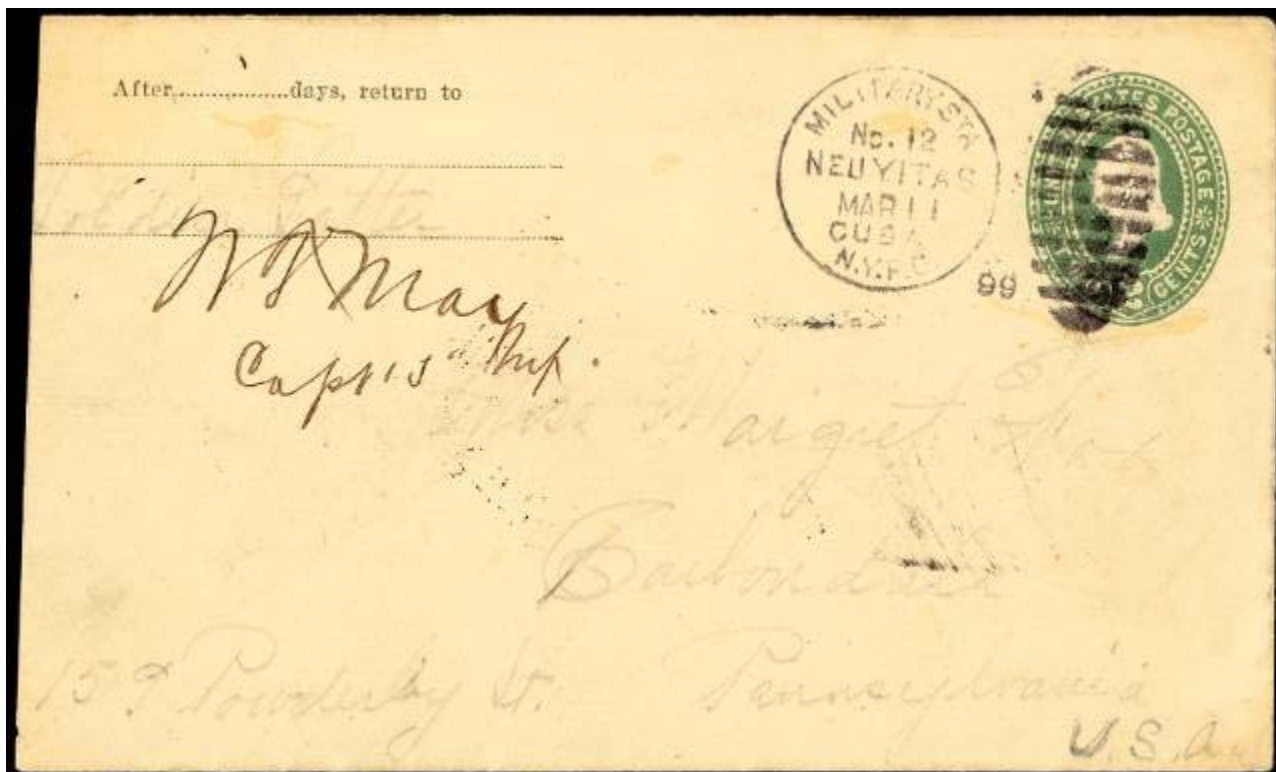 After..................days, return to
Soldier's Letter
W T May
Capt 15" Inf.
MILITARY STA
No. 12
NEUVITAS
MAR 11
CUBA
N.Y.P.O.
99
STATES POSTAGE
CENTS
Miss Margret
Carbondale
159 Powderly St. Pennsylvania
U.S.A